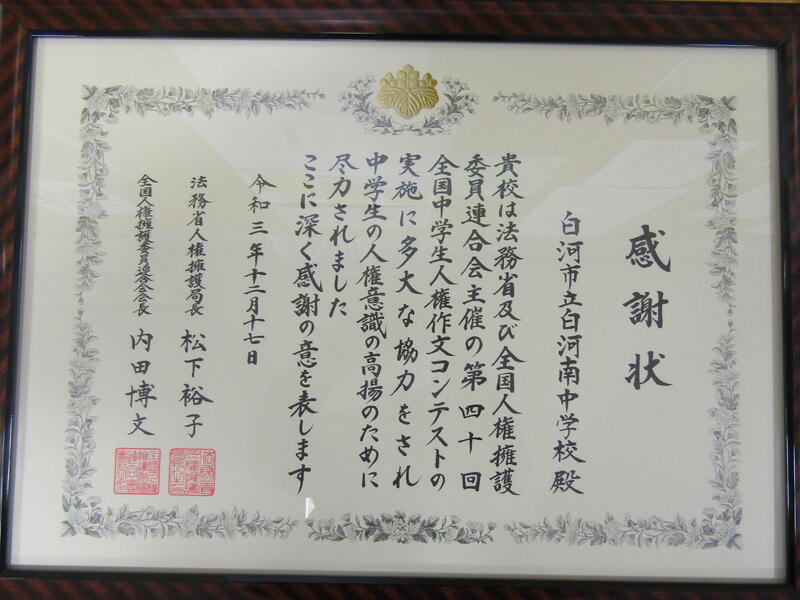 感謝状
白河市立白河南中学校殿
貴校は法務省及び全国人権擁護
委員連合会主催の第四十回
全国中学生人権作文コンテストの
実施に多大な協力をされ
中学生の人権意識の高揚のために
尽力されました
ここに深く感謝の意を表します
令和三年十二月十七日
法務省人権擁護局長 松下裕子
全国人権擁護委員連合会会長 内田博文